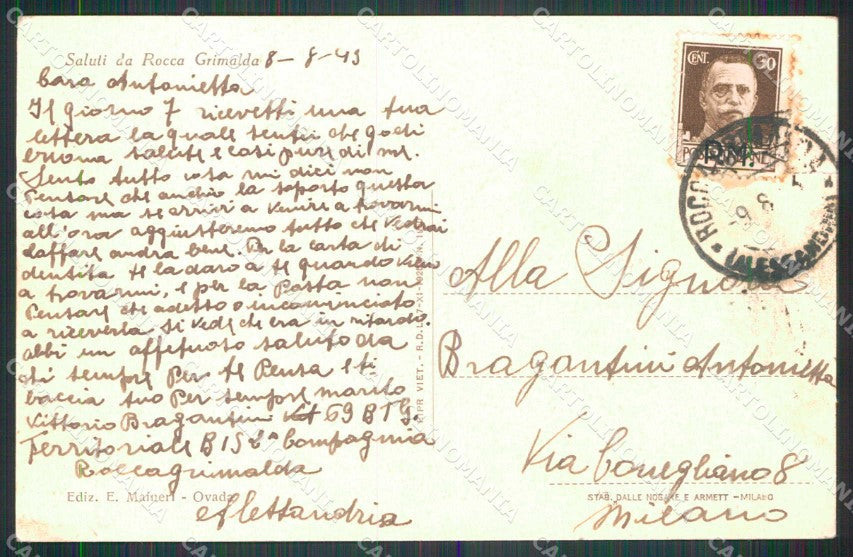 Saluti da Rocca Grimalda 8-8-43
Cara Antonietta
Il giorno 7 ricevetti una tua
lettera la quale sentii che godi
e cosi pure di me.
Sento tutto cosa mi dici non
pensare che anchio la soporto questa
cosa ma se arrivi a venire a trovarmi
all'ora aggiusteremo tutto che vedrai
daffare andra bene. Per la carta di
dentita te la daro a te quando vieni
a trovarmi, e per la Posta non
Pensare che adesso o incominciato
a riceverla si vede che era in ritardo.
abbi un affetuoso saluto da
di sempre Per te Pensa e ti
baccia tuo Per sempre marito
Vittorio Bragantini 69 BTG.
Territoriale BIS 2ª Compagnia
Roccagrimalda
Alessandria
Ediz. E. Maineri - Ovada
RIPR. VIET. - R.D.L.
CENT. 30
POSTE ITALIANE
R.M.
ROCCA GRIMALDA
(ALESSANDRIA)
Alla Signora
Bragantini Antonietta
Via Conegliano 8
Milano
STAB. DALLE NOGARE E ARMETT - MILANO
CARTOLINOMANIA